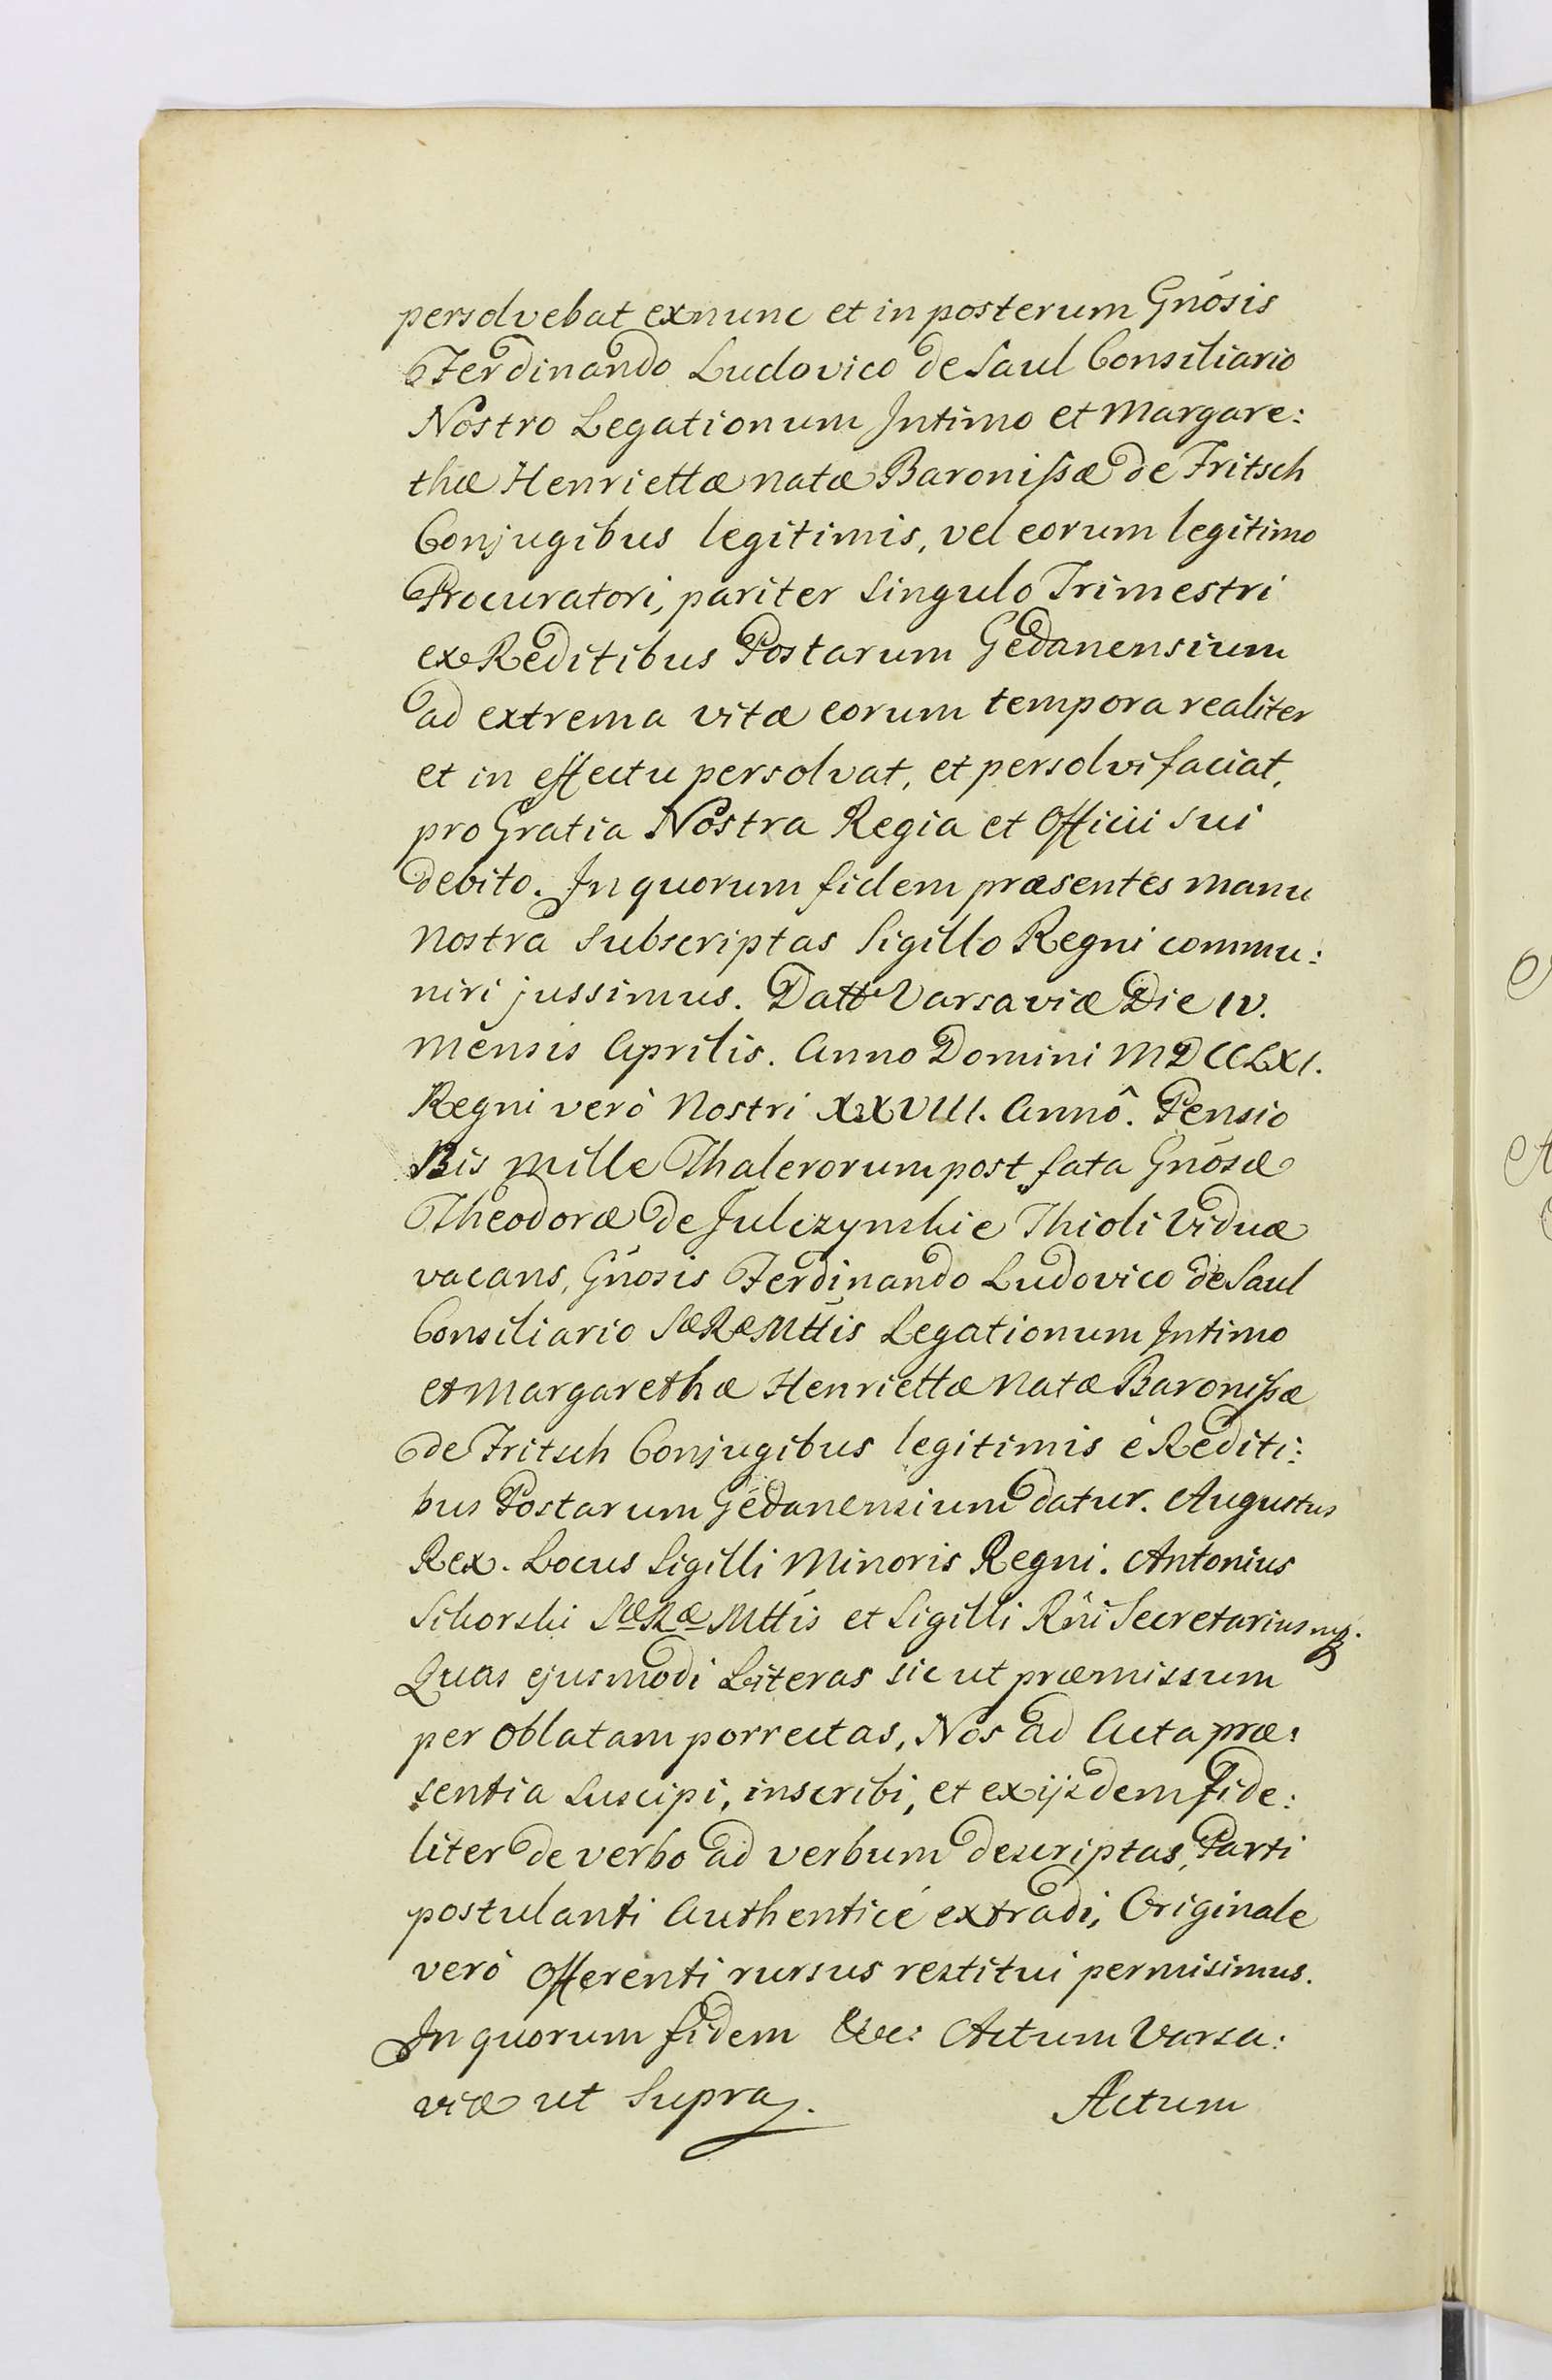 persolvebat exnunc et in posterum Gnósis
Ferdinando Ludovico de Saul Consiliario
Nostro Legationum Intimo et Margare:
thæ Henriettæ natæ Baronissæ de Fritsch
Conjugibus legitimis, vel eorum legitimo
Procuratori, pariter singulo Trimestri
ex Reditibus Postarum Gedanensium
ad extrema vitæ eorum tempora realiter
et in effectu persolvat, et persolvi faciat,
pro Gratia Nostra Regia et Officii sui
debito. In quorum fidem præsentes manu
nostra subscriptas Sigillo Regni commu:
niri jussimus. Datt Varsaviæ Die IV.
mensis Aprilis. Anno Domini MDCCLXI.
Regni verò Nostri XXVIII. Annô. Pensio
Bis mille Thalerorum post fata Gnósæ
Theodoræ de Julczynskie Thioli Viduæ
vacans, Gnósis Ferdinando Ludovico de Saul
Consiliario SæRæMttis Legationum Intimo
et Margarethæ Henriettæ Natæ Baronissæ
de Fritsch Conjugibus legitimis è Rediti:
bus Postarum Gedanensium datur. Augustus
Rex. Locus Sigilli Minoris Regni. Antonius
Sikorski SæRæ Mttis et Sigilli Rñi Secretarius mp.
Quas ejusmodi Literas sic ut præmissum
per Oblatam porrectas, Nos ad Acta præ:
sentia suscipi, inscribi, et ex ijsdem fide:
liter de verbo ad verbum descriptas, Parti
postulanti Authenticé extradi, Originale
verò Offerenti rursus restitui permisimus.
In quorum fidem &c: Actum Varsa:
viæ ut Supra. Actum